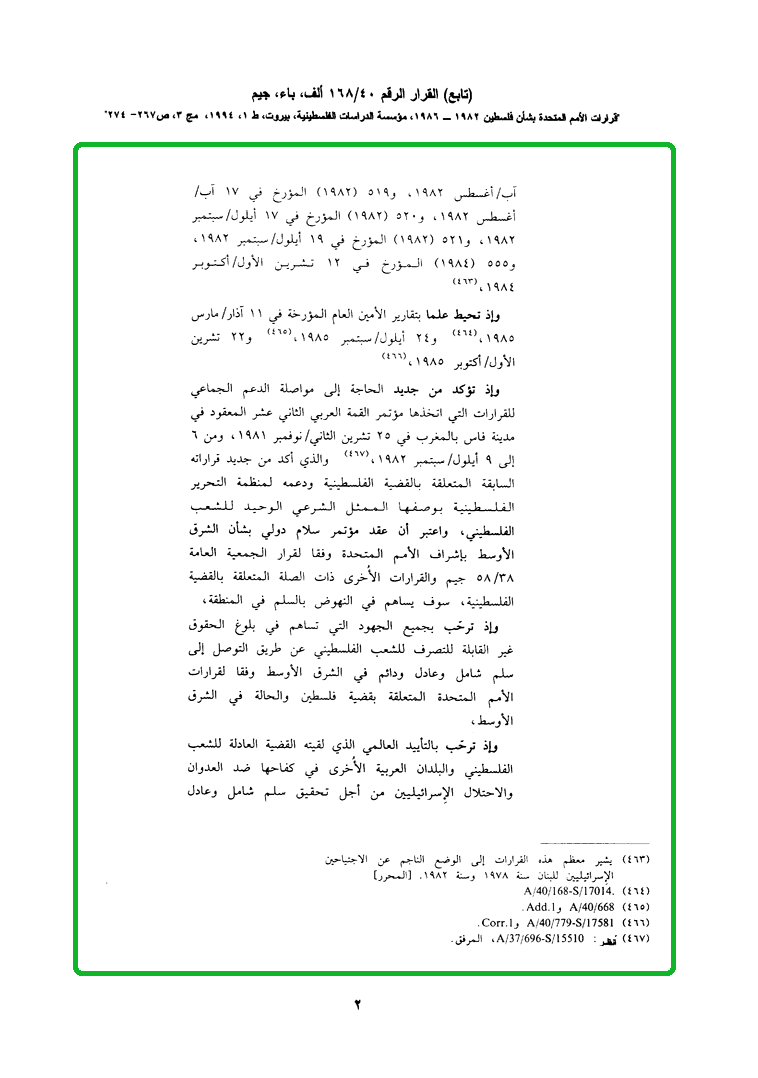 (تابع) القرار الرقم ١٦٨/٤٠ ألف، باء، جيم
"قرارات الأمم المتحدة بشأن فلسطين ١٩٨٢ ــ ١٩٨٦، مؤسسة الدراسات الفلسطينية، بيروت، ط ١، ١٩٩٤، مج ٣، ص٢٦٧- ٢٧٤"
آب/أغسطس ١٩٨٢، و٥١٩ (١٩٨٢) المؤرخ في ١٧ آب/
أغسطس ١٩٨٢، و٥٢٠ (١٩٨٢) المؤرخ في ١٧ أيلول/سبتمبر
١٩٨٢، و٥٢١ (١٩٨٢) المؤرخ في ١٩ أيلول/سبتمبر ١٩٨٢،
و٥٥٥ (١٩٨٤) المؤرخ في ١٢ تشرين الأول/أكتوبر
١٩٨٤،(٤٦٣)
وإذ تحيط علما بتقارير الأمين العام المؤرخة في ١١ آذار/مارس
١٩٨٥،(٤٦٤) و٢٤ أيلول/سبتمبر ١٩٨٥،(٤٦٥) و٢٢ تشرين
الأول/أكتوبر ١٩٨٥،(٤٦٦)
وإذ تؤكد من جديد الحاجة إلى مواصلة الدعم الجماعي
للقرارات التي اتخذها مؤتمر القمة العربي الثاني عشر المعقود في
مدينة فاس بالمغرب في ٢٥ تشرين الثاني/نوفمبر ١٩٨١، ومن ٦
إلى ٩ أيلول/سبتمبر ١٩٨٢،(٤٦٧) والذي أكد من جديد قراراته
السابقة المتعلقة بالقضية الفلسطينية ودعمه لمنظمة التحرير
الفلسطينية بوصفها الممثل الشرعي الوحيد للشعب
الفلسطيني، واعتبر أن عقد مؤتمر سلام دولي بشأن الشرق
الأوسط بإشراف الأمم المتحدة وفقا لقرار الجمعية العامة
٥٨/٣٨ جيم والقرارات الأُخرى ذات الصلة المتعلقة بالقضية
الفلسطينية، سوف يساهم في النهوض بالسلم في المنطقة،
وإذ ترحّب بجميع الجهود التي تساهم في بلوغ الحقوق
غير القابلة للتصرف للشعب الفلسطيني عن طريق التوصل إلى
سلم شامل وعادل ودائم في الشرق الأوسط وفقا لقرارات
الأمم المتحدة المتعلقة بقضية فلسطين والحالة في الشرق
الأوسط،
وإذ ترحّب بالتأييد العالمي الذي لقيته القضية العادلة للشعب
الفلسطيني والبلدان العربية الأُخرى في كفاحها ضد العدوان
والاحتلال الإسرائيليين من أجل تحقيق سلم شامل وعادل
(٤٦٣) يشير معظم هذه القرارات إلى الوضع الناجم عن الاجتياحين
الإسرائيليين للبنان سنة ١٩٧٨ وسنة ١٩٨٢. [المحرر]
(٤٦٤) A/40/168-S/17014.
(٤٦٥) A/40/668 وAdd.1.
(٤٦٦) A/40/779-S/17581 وCorr.1.
(٤٦٧) أنظر: A/37/696-S/15510، المرفق.
٢